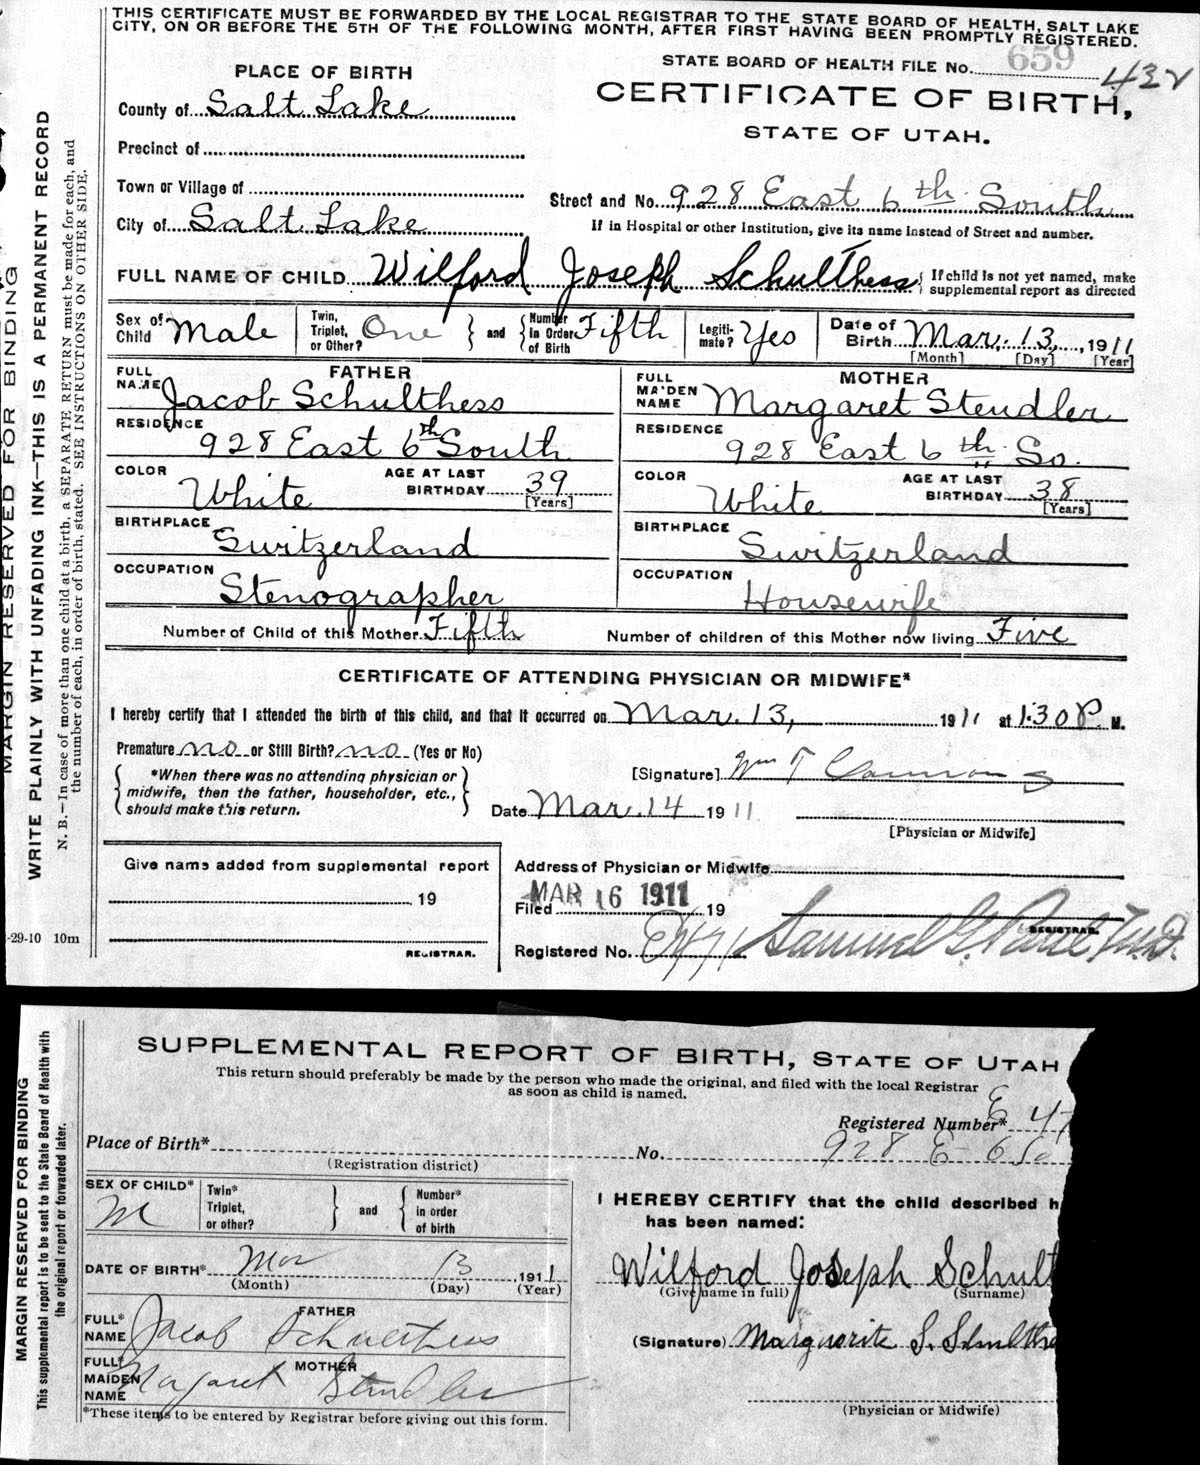 THIS CERTIFICATE MUST BE FORWARDED BY THE LOCAL REGISTRAR TO THE STATE BOARD OF HEALTH, SALT LAKE
CITY, ON OR BEFORE THE 5TH OF THE FOLLOWING MONTH, AFTER FIRST HAVING BEEN PROMPTLY REGISTERED.
STATE BOARD OF HEALTH FILE No. 659 432
PLACE OF BIRTH
CERTIFICATE OF BIRTH,
STATE OF UTAH.
County of Salt Lake
Precinct of
Town or Village of
Street and No. 928 East 6th South
City of Salt Lake
If in Hospital or other Institution, give its name instead of Street and number.
FULL NAME OF CHILD Wilford Joseph Schulthess { If child is not yet named, make
supplemental report as directed
Sex of Child Male Twin, Triplet, or Other? One } and { Number In Order of Birth Fifth Legiti-mate? Yes Date of Birth Mar. 13, 1911
[Month] [Day] [Year]
FATHER
FULL NAME Jacob Schulthess
RESIDENCE 928 East 6th South
COLOR White AGE AT LAST BIRTHDAY 39 [Years]
BIRTHPLACE Switzerland
OCCUPATION Stenographer
MOTHER
FULL MAIDEN NAME Margaret Stendler
RESIDENCE 928 East 6th So.
COLOR White AGE AT LAST BIRTHDAY 38 [Years]
BIRTHPLACE Switzerland
OCCUPATION Housewife
Number of Child of this Mother Fifth Number of children of this Mother now living Five
CERTIFICATE OF ATTENDING PHYSICIAN OR MIDWIFE*
I hereby certify that I attended the birth of this child, and that it occurred on Mar. 13, 1911 at 1:30 P. M.
Premature no or Still Birth? no (Yes or No)
{ *When there was no attending physician or
midwife, then the father, householder, etc.,
should make this return. }
[Signature] Wm T
Date Mar. 14 1911
[Physician or Midwife]
Give name added from supplemental report
19
REGISTRAR.
Address of Physician or Midwife
Filed MAR 16 1911 19
REGISTRAR.
Registered No. Samuel G. Paul M.D.
MARGIN RESERVED FOR BINDING
WRITE PLAINLY WITH UNFADING INK—THIS IS A PERMANENT RECORD
N. B.—In case of more than one child at a birth, a SEPARATE RETURN must be made for each, and
the number of each, in order of birth, stated. SEE INSTRUCTIONS ON OTHER SIDE.
-29-10 10m
SUPPLEMENTAL REPORT OF BIRTH, STATE OF UTAH
This return should preferably be made by the person who made the original, and filed with the local Registrar
as soon as child is named.
Registered Number* E 47
Place of Birth* No. 928 E 6 So
(Registration district)
SEX OF CHILD* M Twin* Triplet, or other? } and { Number* in order of birth
DATE OF BIRTH* Mar 13 1911
(Month) (Day) (Year)
FATHER
FULL* NAME Jacob Schulthess
MOTHER
FULL* MAIDEN NAME Margaret Stendler
*These items to be entered by Registrar before giving out this form.
I HEREBY CERTIFY that the child described h
has been named:
Wilford Joseph Schult
(Give name in full) (Surname)
(Signature) Marguerite S. Schulthe
(Physician or Midwife)
MARGIN RESERVED FOR BINDING
This supplemental report is to be sent to the State Board of Health with
the original report or forwarded later.